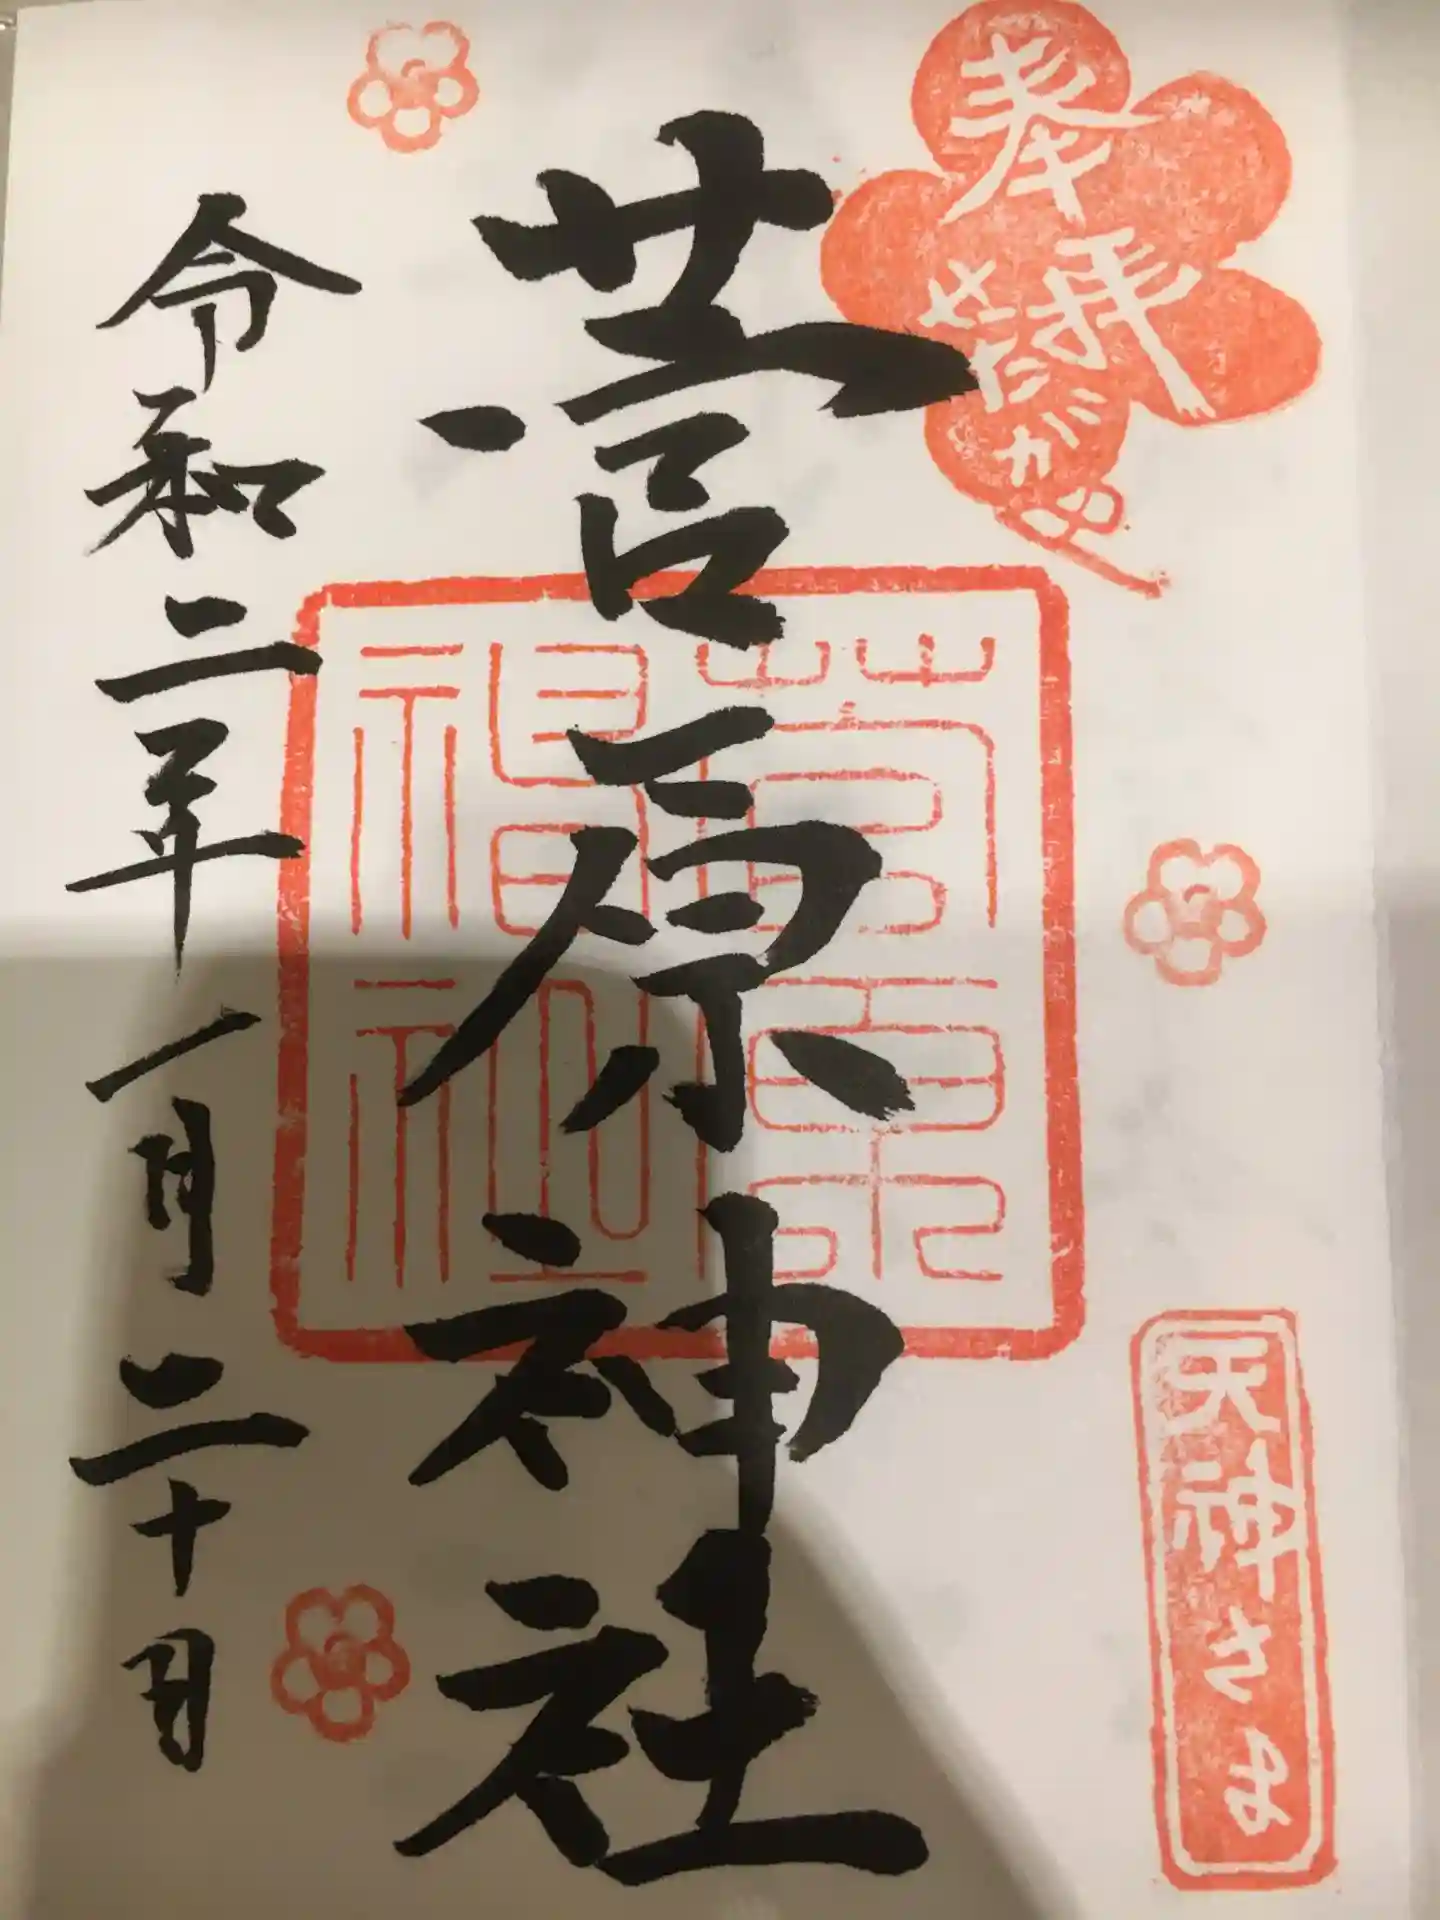 奉拝
せんだがい
天神さま
菅原神社
菅原
神社
令和二年一月二十日